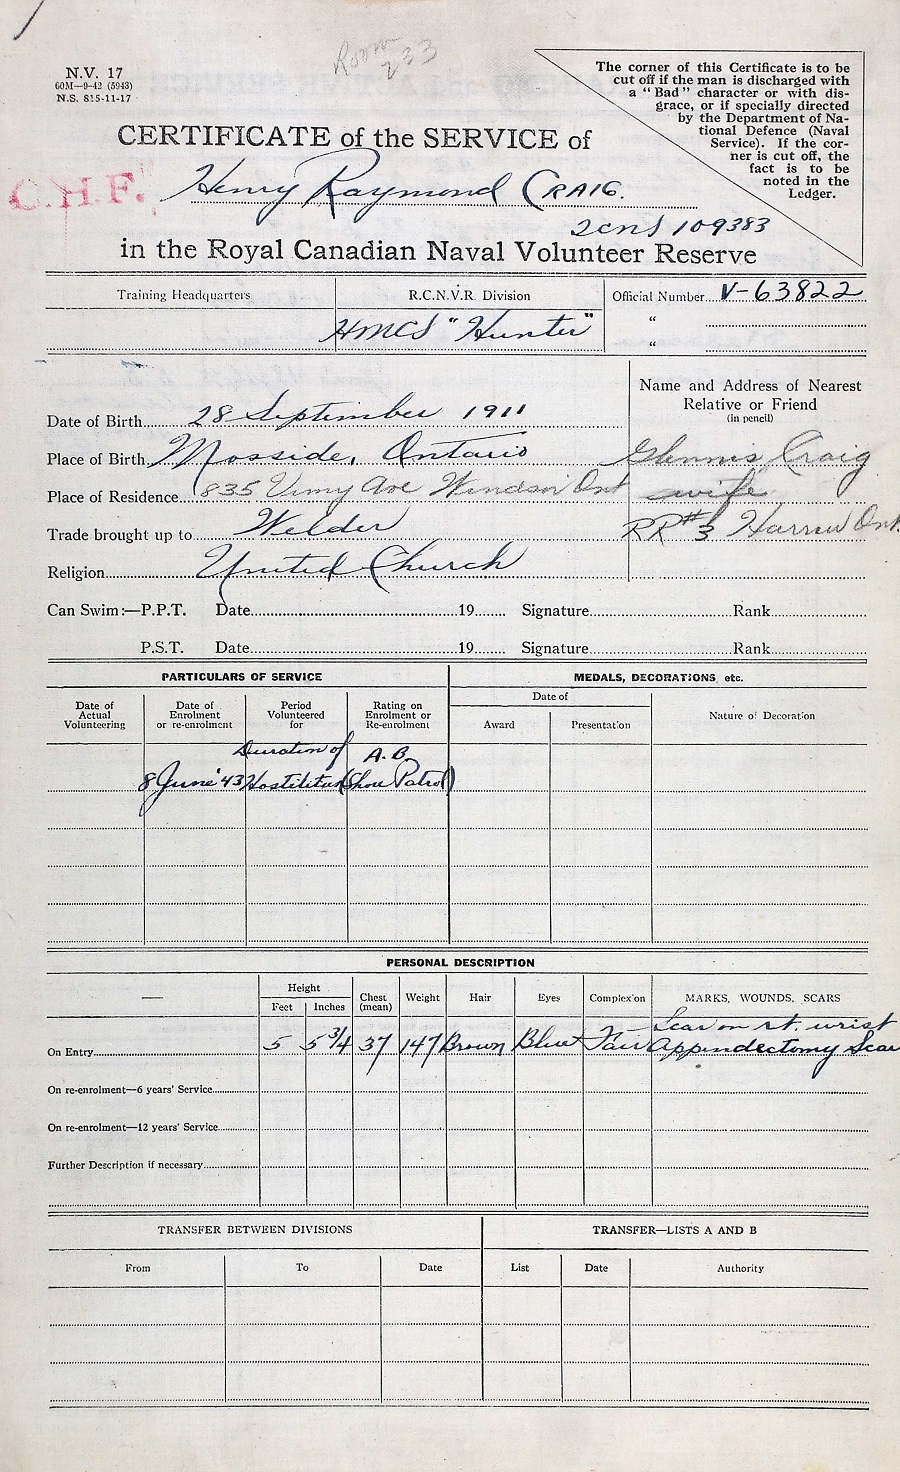 Room
233
N.V. 17
60M—9-42 (5943)
N.S. 815-11-17
The corner of this Certificate is to be
cut off if the man is discharged with
a "Bad" character or with dis-
grace, or if specially directed
by the Department of Na-
tional Defence (Naval
Service). If the cor-
ner is cut off, the
fact is to be
noted in the
Ledger.
CERTIFICATE of the SERVICE of
C.H.F.
Henry Raymond CRAIG.
109383
in the Royal Canadian Naval Volunteer Reserve
Training Headquarters
R.C.N.V.R. Division
HMCS "Hunter"
Official Number V-63822
"
"
Name and Address of Nearest
Relative or Friend
(in pencil)
Date of Birth 28 September 1911
Place of Birth Mosside, Ontario
Glennis Craig
Place of Residence 835 Vimy Ave Windsor Ont
wife
Trade brought up to Welder
RR#3 Harrow Ont.
Religion United Church
Can Swim:—P.P.T. Date 19 Signature Rank
P.S.T. Date 19 Signature Rank
PARTICULARS OF SERVICE
MEDALS, DECORATIONS, etc.
Date of Actual Volunteering
Date of Enrolment or re-enrolment
Period Volunteered for
Rating on Enrolment or Re-enrolment
Date of
Award
Presentation
Nature of Decoration
Duration of A.B.
8 June '43 Hostilities (Shore Patrol)
PERSONAL DESCRIPTION
—
Height
Feet Inches Chest (mean) Weight Hair Eyes Complexion MARKS, WOUNDS, SCARS
Scar on rt. wrist
On Entry 5 5 3/4 37 147 Brown Blue Fair Appindectomy Scar
On re-enrolment—6 years' Service
On re-enrolment—12 years' Service
Further Description if necessary
TRANSFER BETWEEN DIVISIONS
TRANSFER—LISTS A AND B
From To Date List Date Authority